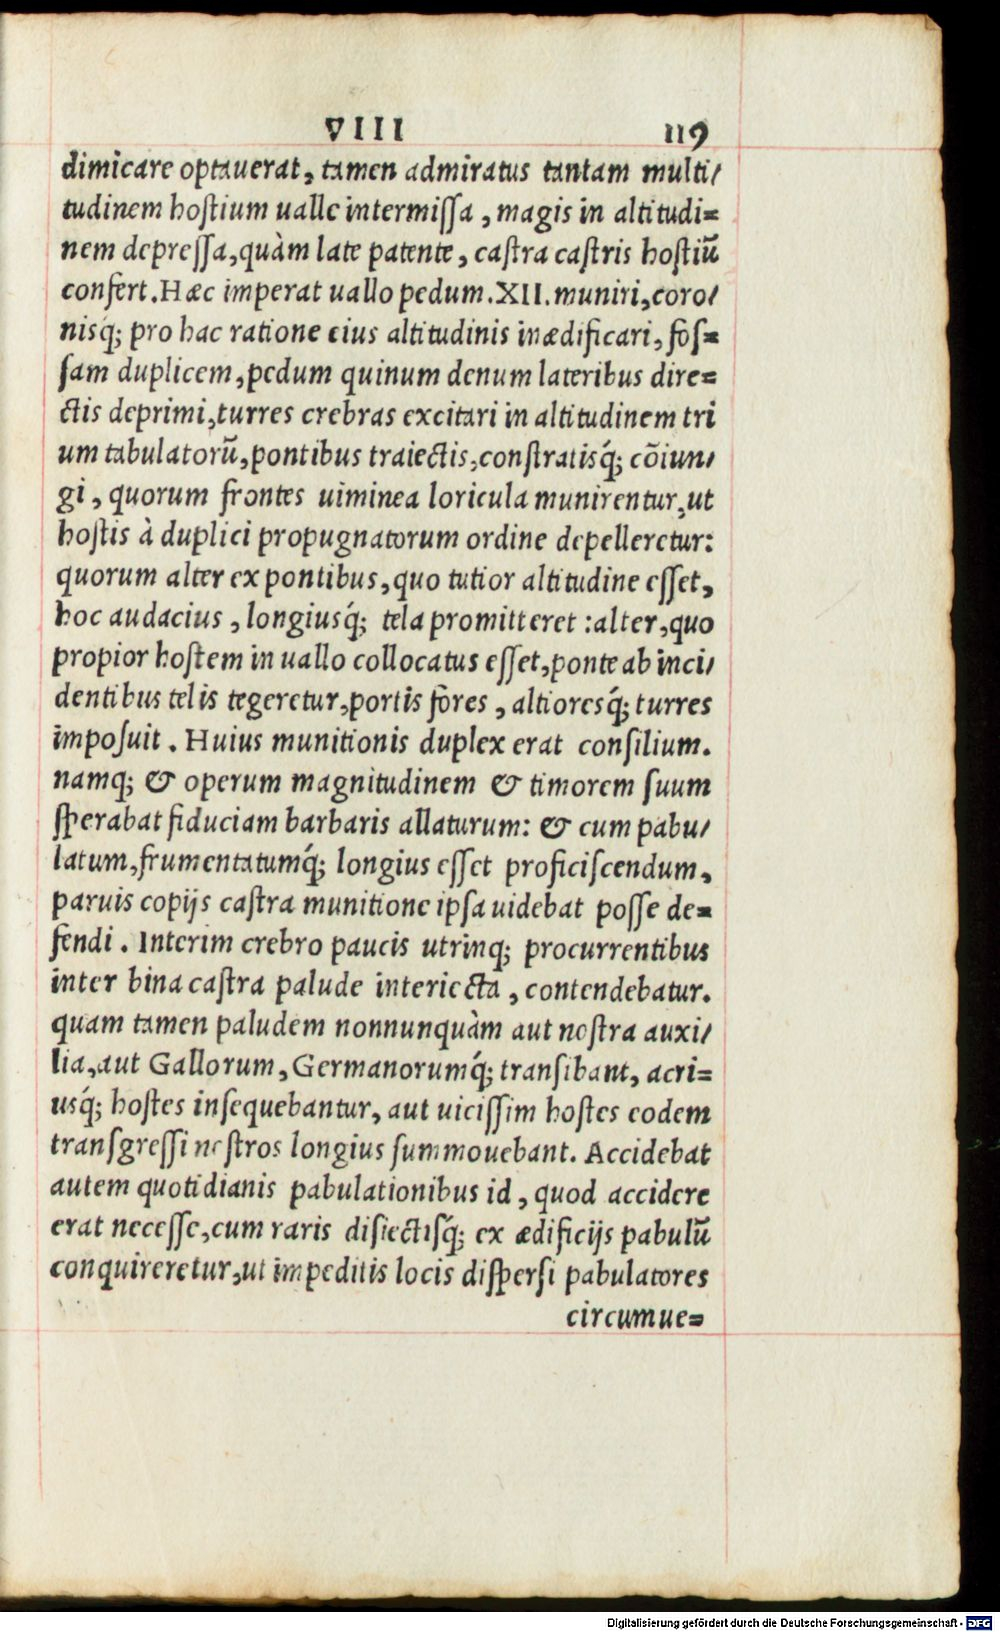 VIII 119
dimicare optauerat, tamen admiratus tantam multi/
tudinem hoſtium ualle intermiſſa, magis in altitudi=
nem depreſſa, quàm late patente, caſtra caſtris hoſtiũ
confert. Hæc imperat uallo pedum. XII. muniri, coro/
nisq́; pro hac ratione eius altitudinis inædificari, foſ=
ſam duplicem, pedum quinum denum lateribus dire=
ctis deprimi, turres crebras excitari in altitudinem tri
um tabulatorũ, pontibus traiectis, conſtratisq́; cõiun/
gi, quorum frontes uiminea loricula munirentur, ut
hoſtis à duplici propugnatorum ordine depelleretur:
quorum alter ex pontibus, quo tutior altitudine eſſet,
hoc audacius, longiusq́; tela promitteret: alter, quo
propior hoſtem in uallo collocatus eſſet, ponte ab inci/
dentibus telis tegeretur, portis fores, altioresq́; turres
impoſuit. Huius munitionis duplex erat conſilium.
namq; & operum magnitudinem & timorem ſuum
ſperabat fiduciam barbaris allaturum: & cum pabu/
latum, frumentatumq́; longius eſſet proficiſcendum,
paruis copijs caſtra munitione ipſa uidebat poſſe de=
fendi. Interim crebro paucis utrinq; procurrentibus
inter bina caſtra palude interiecta, contendebatur.
quam tamen paludem nonnunquàm aut noſtra auxi/
lia, aut Gallorum, Germanorumq́; tranſibant, acri=
usq́; hoſtes inſequebantur, aut uiciſſim hoſtes eodem
tranſgreſſi noſtros longius ſummouebant. Accidebat
autem quotidianis pabulationibus id, quod accidere
erat neceſſe, cum raris diſiectiſq́; ex ædificijs pabulũ
conquireretur, ut impeditis locis diſperſi pabulatores
circumue=
Digitalisierung gefördert durch die Deutsche Forschungsgemeinschaft - DFG